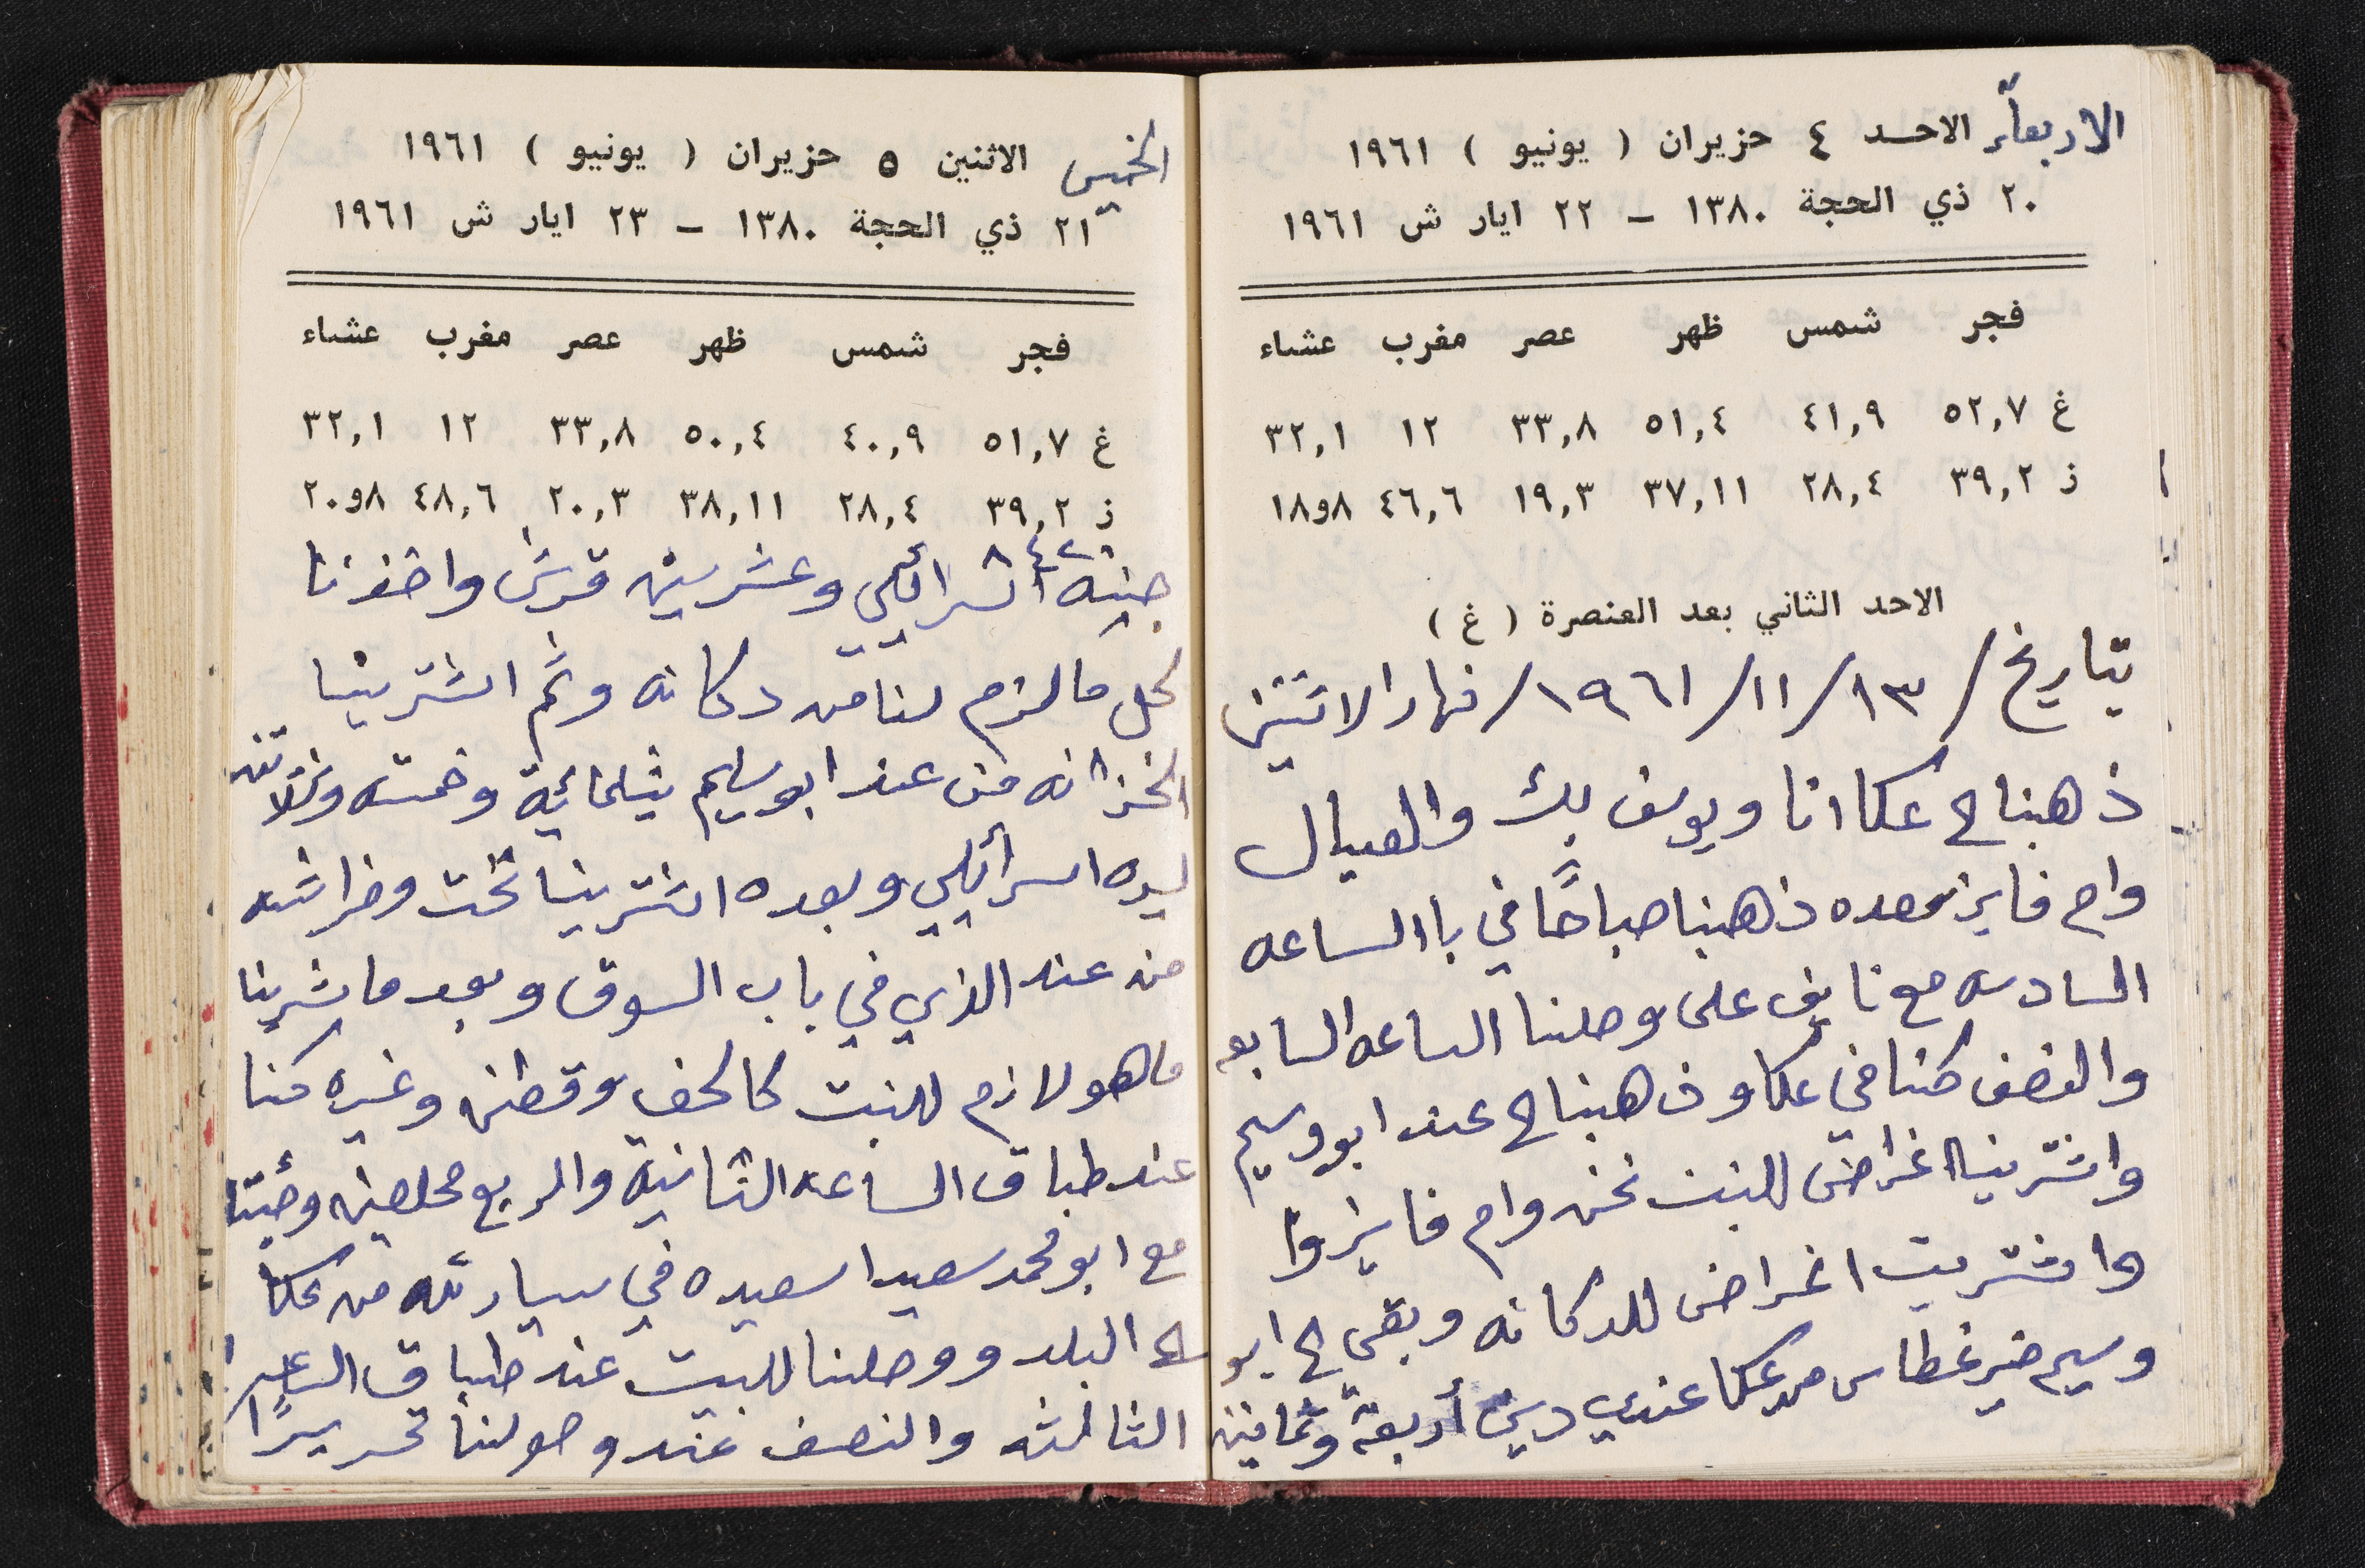 الاربعاء الاحد ٤ حزيران ( يونيو ) ١٩٦١
٢٠ ذي الحجة ١٣٨٠ - ٢٢ ايار ش ١٩٦١
فجر شمس ظهر عصر مغرب عشاء
غ ٥٢,٧ ٤١,٩ ٥١,٤ ٣٣,٨ ١٢ ٣٢,١
ذ ٣٩,٢ ٢٨,٤ ٣٧,١١ ١٩,٣ ٤٦,٦ ٨و١٨
الاحد الثاني بعد العنصرة ( غ )
بتاريخ /١٣/١١/١٩٦١/ نهار الاثنين
ذهبنا ح عكا انا ويوسف بك والعيال
وام فايز سعده ذهبنا صباحًا في با الساعه
السادسه مع نايف علي وصلنا الساعه السابعه
والنصف كنا في عكا وذهبنا ح عند ابو وسيم
واشترينا اغراض للبنت نحن وام فايز وا
وا شتريت اغراض للدكانه وبقى الى ابو
وسيم خير غطاس من عكا عندي دين أربعة وثمانين
الخميس الاثنين ٥ حزيران ( يونيو ) ١٩٦١
٢١ ذي الحجة ١٣٨٠ - ٢٣ ايار ش ١٩٦١
فجر شمس ظهر عصر مغرب عشاء
غ ٥١,٧ ٤٠,٩ ٥٠,٤ ٣٣,٨ ١٢ ٣٢,١
ذ ٣٩,٢ ٢٨,٤ ٣٨,١١ ٢٠,٣ ٤٨,٦ ٨و٢٠
٨٤٢٠
جنيه اسرائيلي وعشرين قرش واخذنا
كل ما لزم لنا من دكانه وثم اشترينا
الخزانه من عند ابو سليم بثلمائية وخمسه وثلاثين
ليره اسرائيلي وبعده اشترينا تخت وفراشه
من عند الذي في باب السوق وبعد ما شرينا
ما هو لازم للبنت كالحف وقطن وغيره كنا
عند طباق الساعه الثانية والربع مخلصين وجئنا
مع ابو محمد سعيد اسعيده في سيارته من عكا
الى البلد ووصلنا للبيت عند طباق الساعه
الثالثه والنصف عند وصولنا تحريرًا